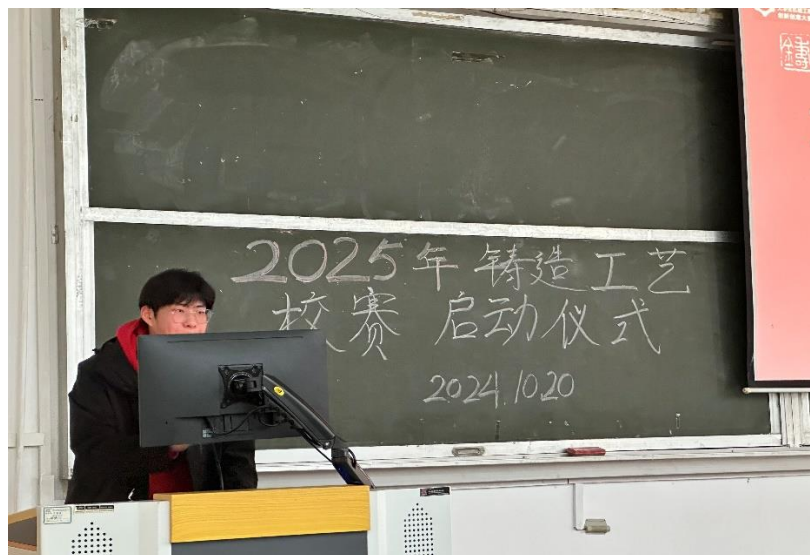 2025年铸造工艺
校赛 启动仪式
2024.10.20